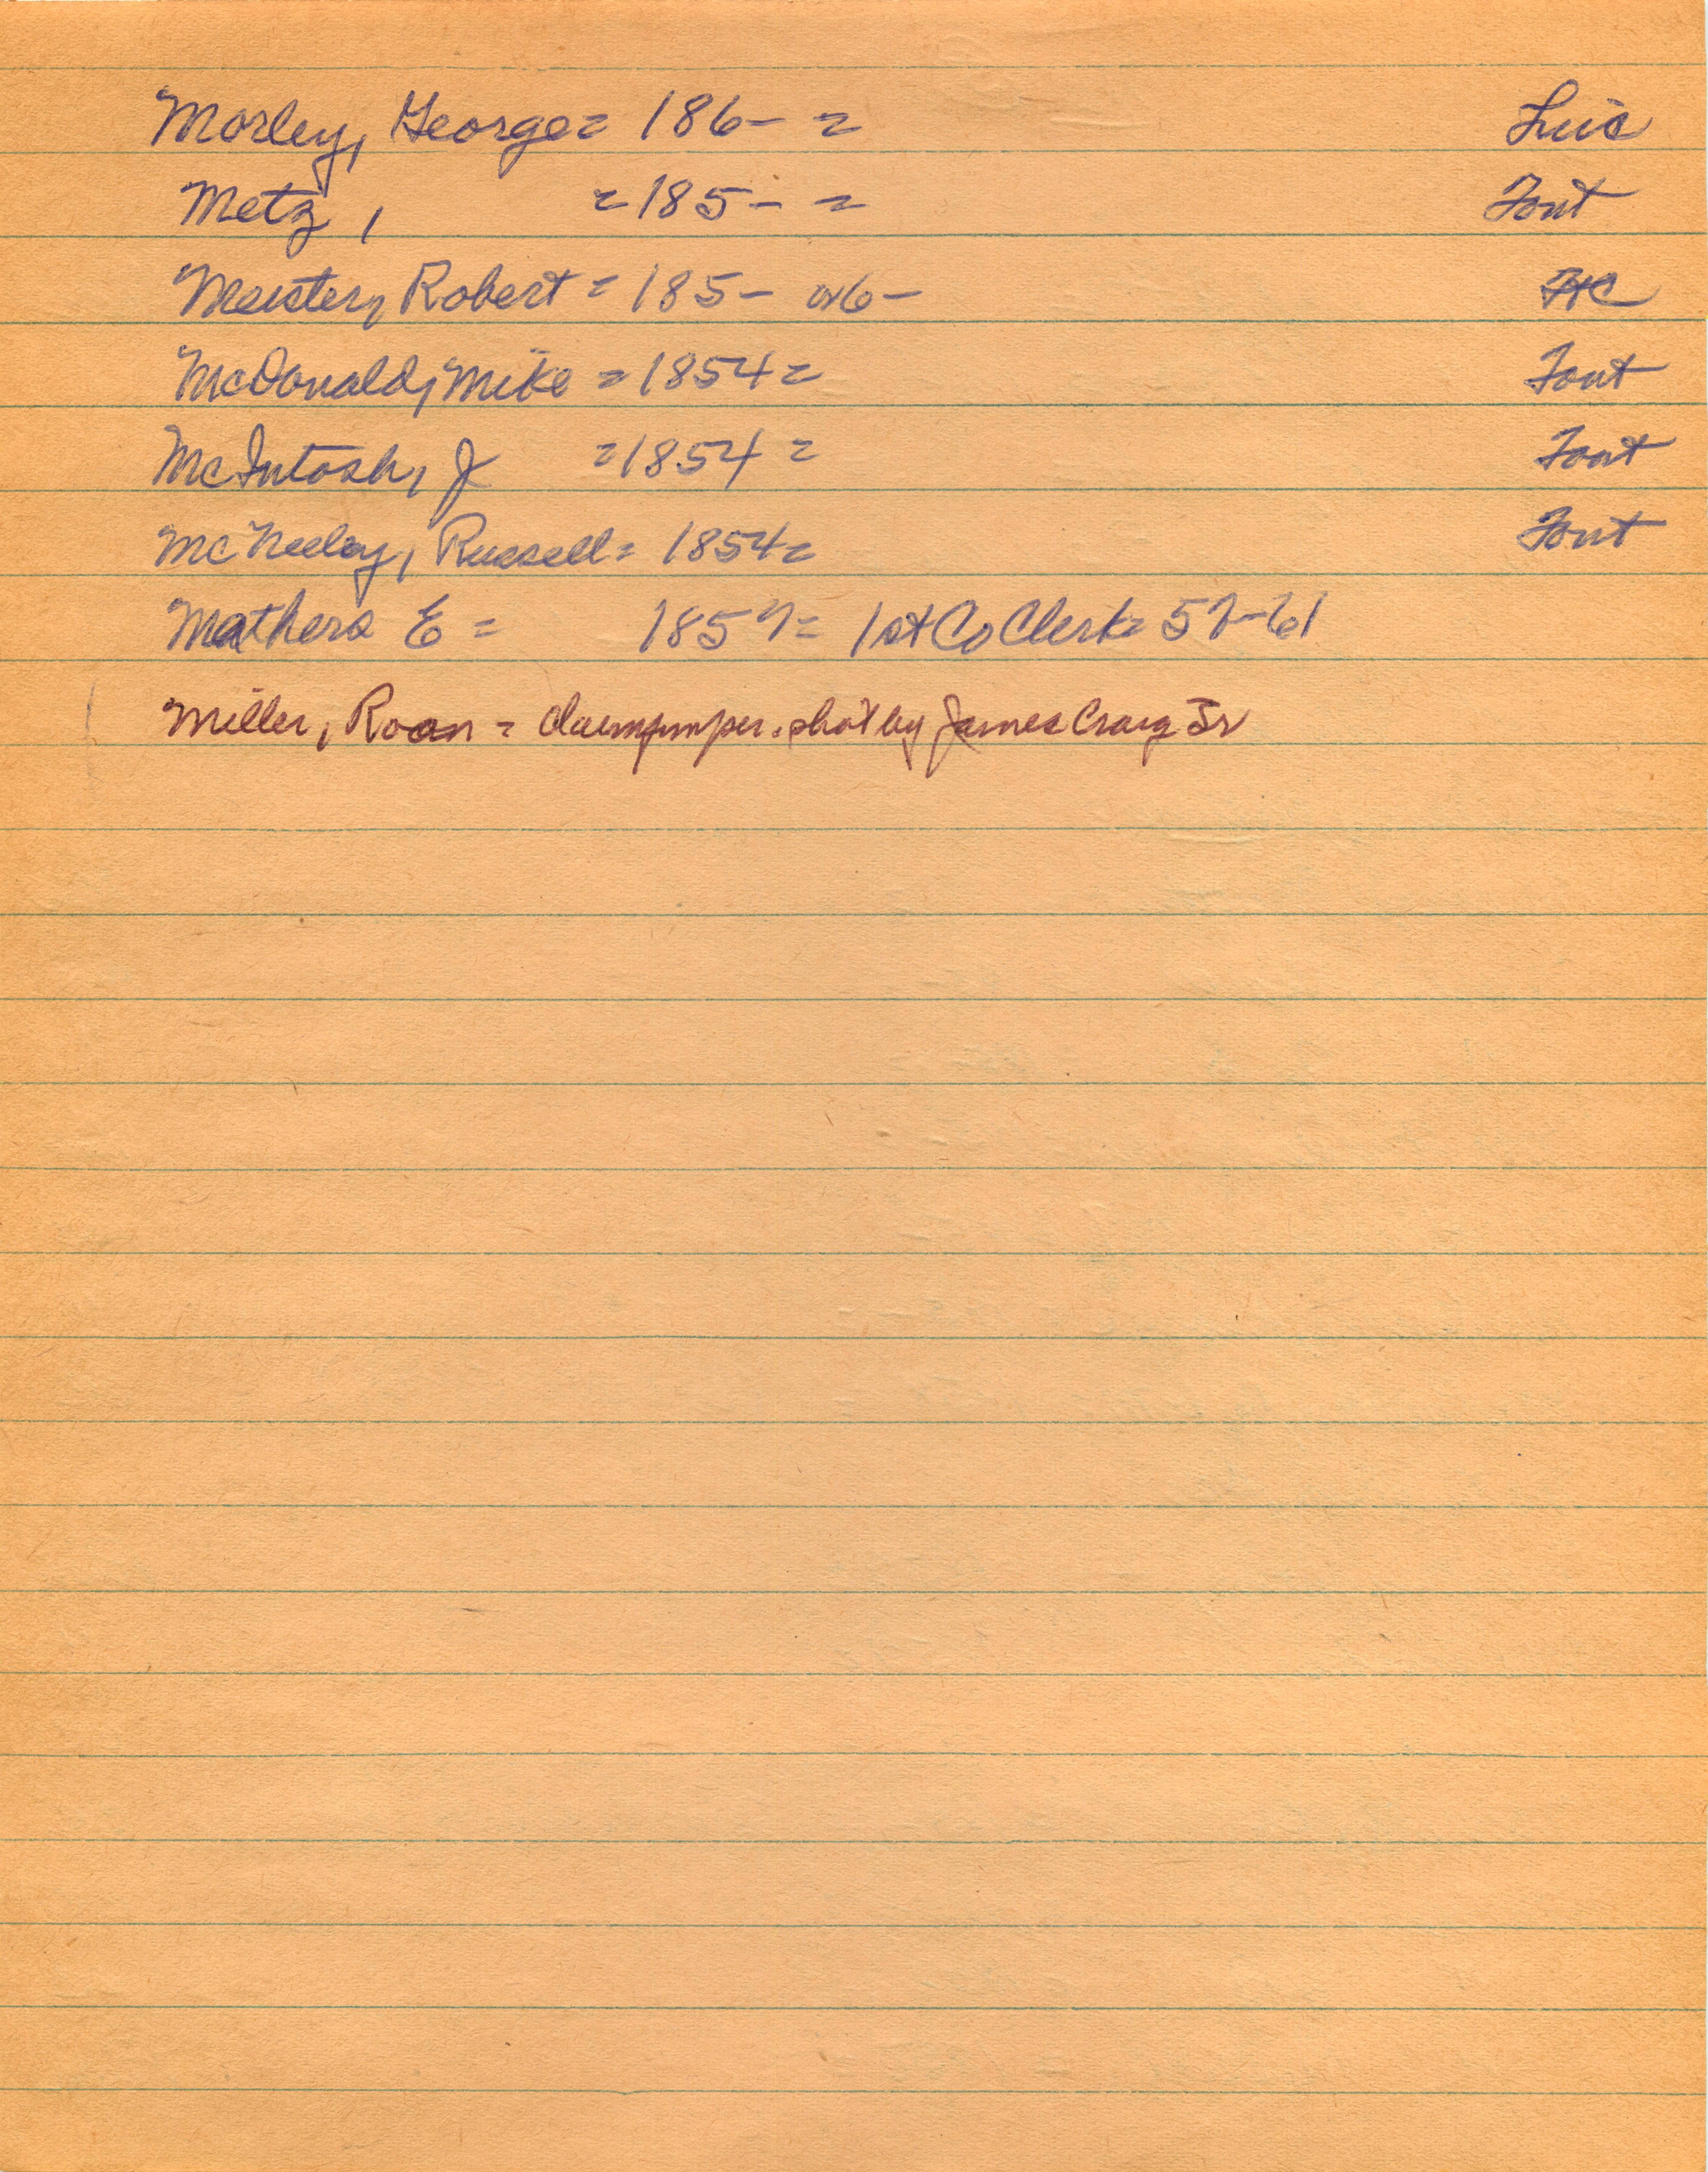 Morley, George = 186- = Luis
Metz, = 185- = Font
Meister, Robert = 185- or 6- FtC
McDonald, Mike = 1854 = Font
McIntosh, J = 1854 = Font
McNeeley, Russell = 1854 = Font
Mathers E = 1857 = 1st Co Clerk = 57-61
Miller, Roan = claimjumper. shot by James Craig Jr